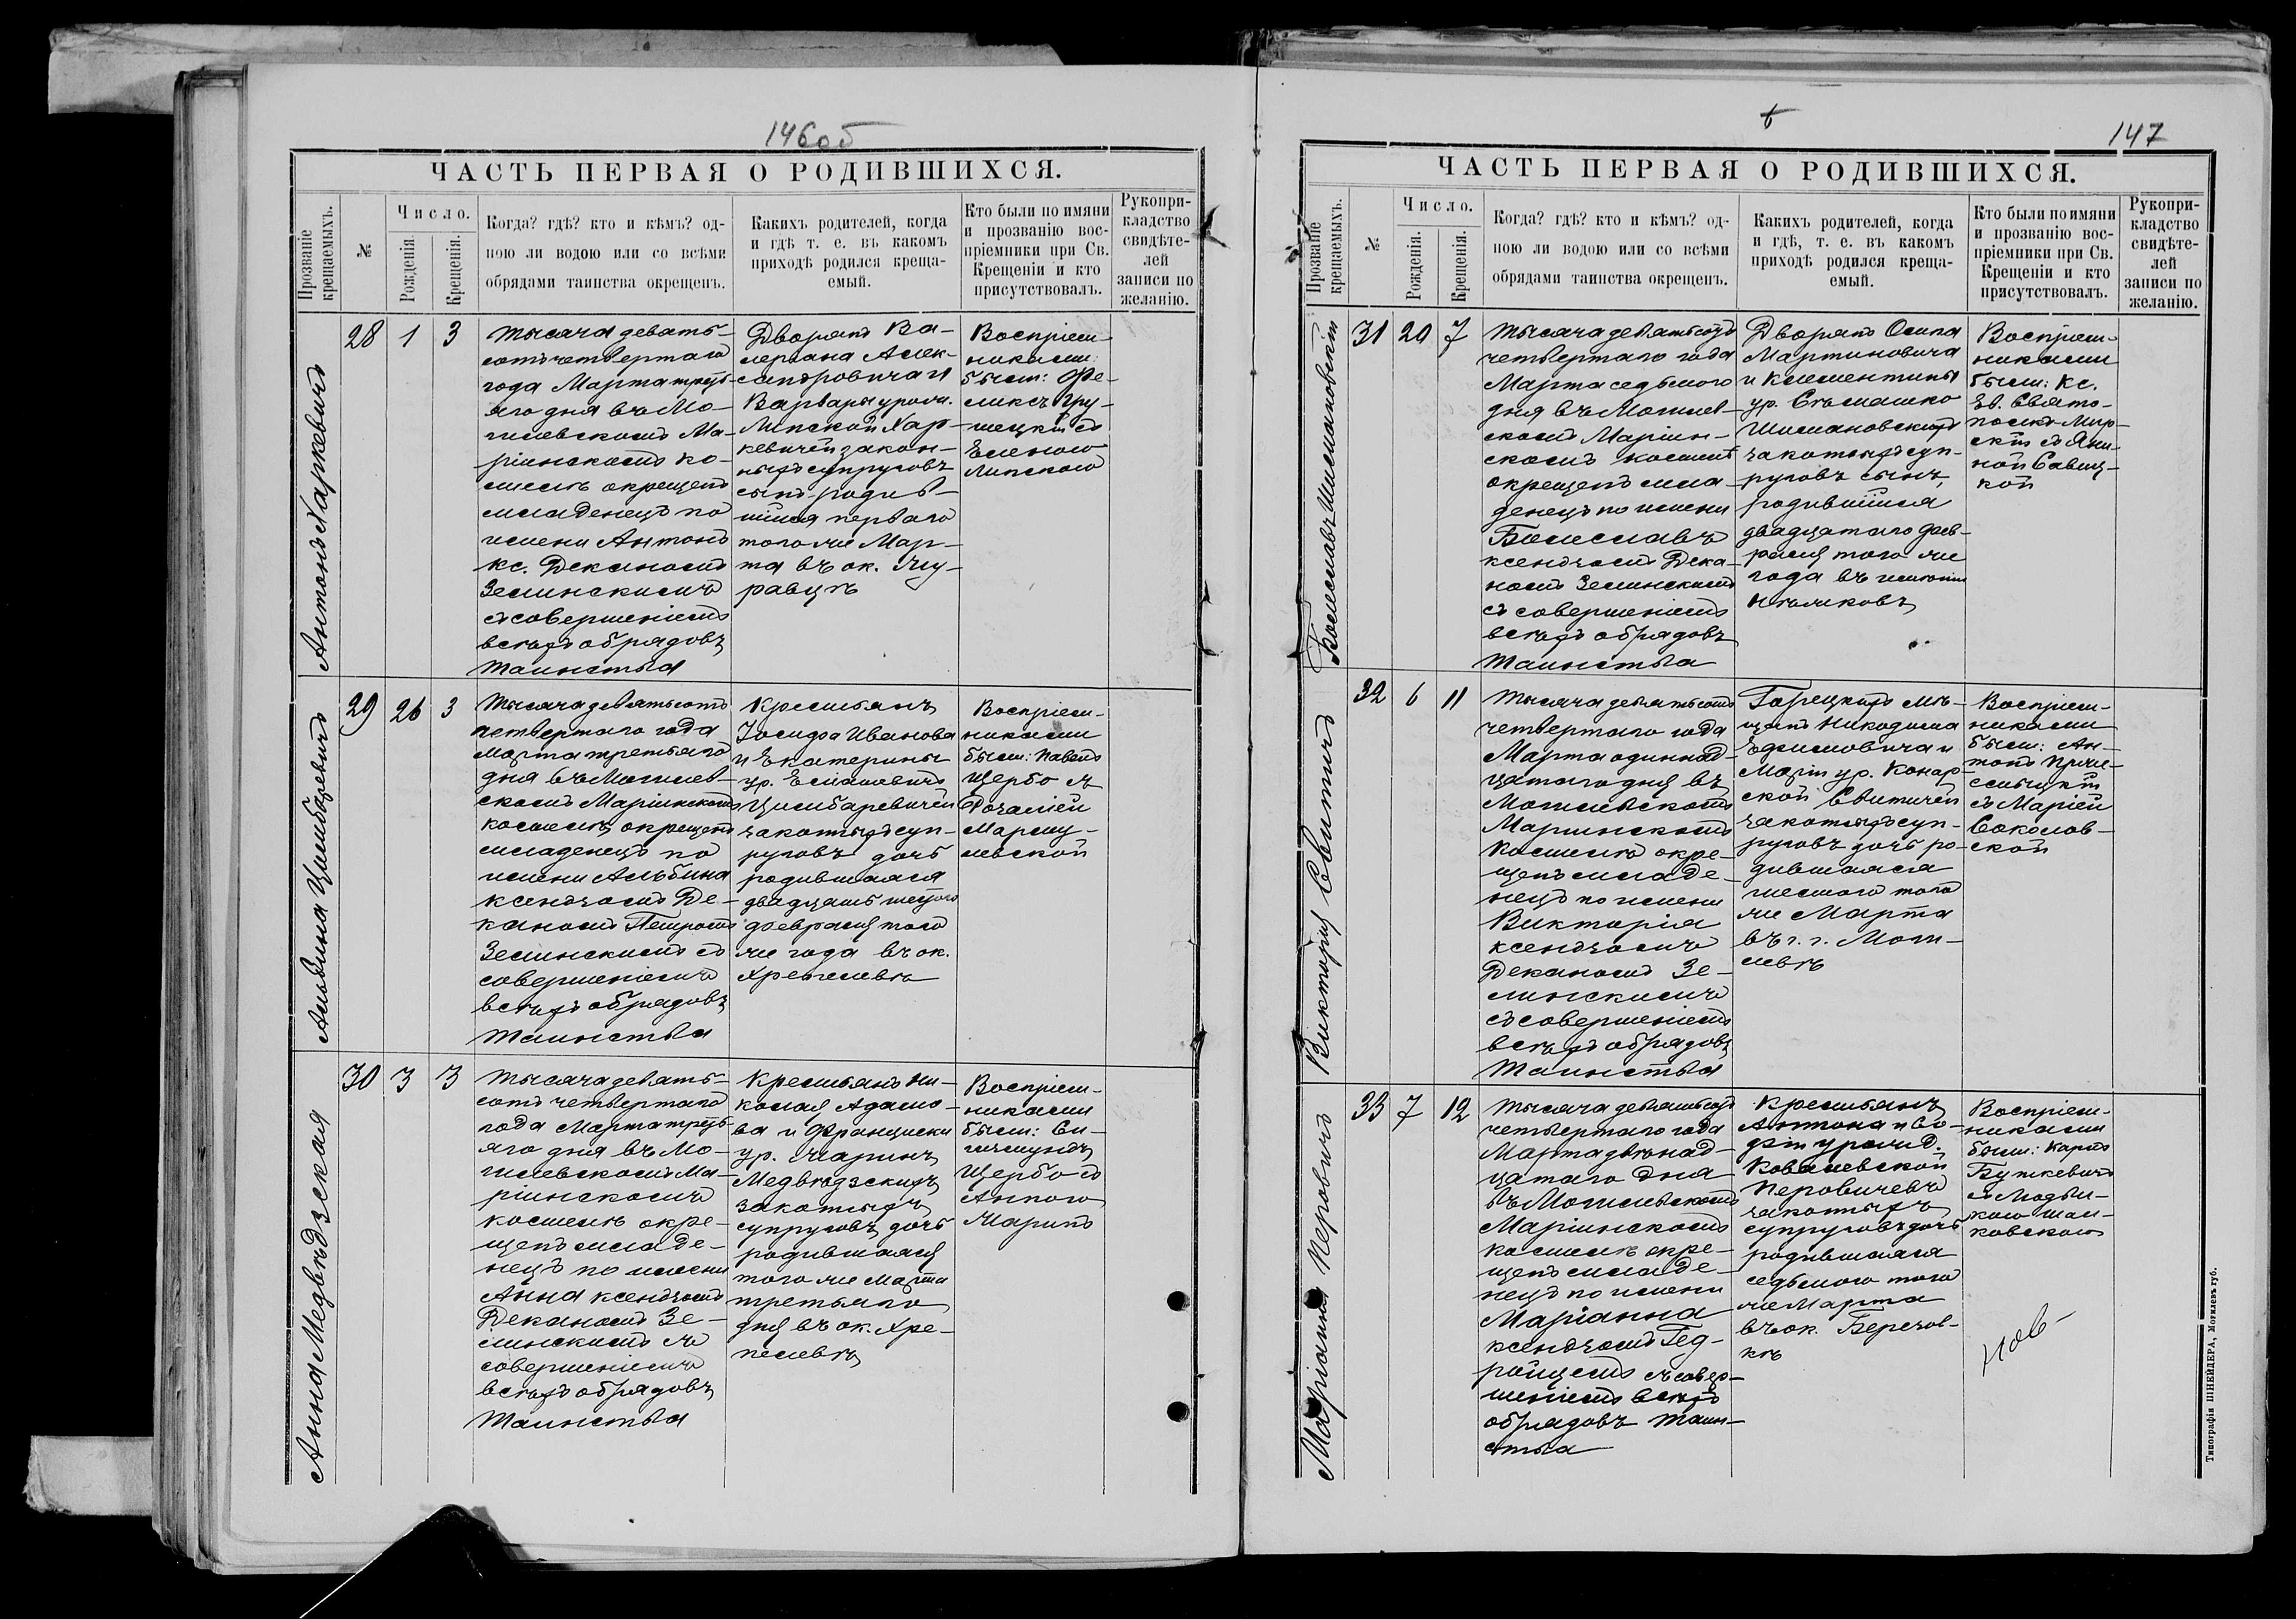 146об
ЧАСТЬ ПЕРВАЯ О РОДИВШИХСЯ.
Прозваніе крещаемыхъ.
№
Число.
Рожденія.
Крещенія.
Когда? гдѣ? кто и кѣмъ? од-
ною ли водою или со всѣми
обрядами таинства окрещенъ.
Какихъ родителей, когда
и гдѣ т. е. въ какомъ
приходѣ родился креща-
емый.
Кто были по имяни
и прозванію вос-
пріемники при Св.
Крещеніи и кто
присутствовалъ.
Рукопри-
кладство
свидѣте-
лей
записи по
желанію.
Антонъ Харкевичъ
28 1 3
Тысяча девять-
сотъ четвертаго
года Марта треть-
яго дня въ Мо-
гилевскомъ Ма-
ріинскомъ ко-
стелѣ окрещенъ
младенецъ по
имени Антонъ
кс. Деканомъ
Зелинскимъ
съ совершеніемъ
всѣхъ обрядовъ
Таинства
Дворянъ Ва-
леріана Алек-
сандровича и
Варвары урожд.
Липской Хар-
кевичей закон-
ныхъ супруговъ
сынъ родив-
шійся перваго
того же Мар-
та въ ок.
Воспріем-
никами
были: Фе-
ликсъ Гру-
шецкій съ
Еленою
Липскою
Альбина Цимбаревичъ
29 26 3
Тысяча девятьсотъ
четвертаго года
Марта третьяго
дня въ Могилев-
скомъ Маріинскомъ
костелѣ окрещенъ
младенецъ по
имени Альбина
ксендзомъ Де-
каномъ Петромъ
Зелинскимъ съ
совершеніемъ
всѣхъ обрядовъ
Таинства
Крестьянъ
Іосифа Иванова
и Екатерины
ур.
Цимбаревичей
законныхъ суп-
руговъ дочь
родившаяся
двадцать шестого
февраля того
же года въ ок.
Воспріем-
никами
были: Павелъ
Щербо съ
Розаліей
Анна Медвѣдзская
30 3 3
Тысяча девять-
сотъ четвертаго
года Марта треть-
яго дня въ Мо-
гилевскомъ Ма-
ріинскомъ
костелѣ окре-
щенъ младе-
нецъ по имени
Анна ксендзомъ
Деканомъ Зе-
линскимъ съ
совершеніемъ
всѣхъ обрядовъ
Таинства
Крестьянъ Ни-
колая Адамо-
ва и Франциски
ур. Маринъ
Медвѣдзскихъ
законныхъ
супруговъ дочь
родившаяся
того же Марта
третьяго
дня въ ок. Хре-
пелевѣ
Воспріем-
никами
были: Си-
гизмундъ
Щербо съ
Анною
Маринъ
147
ЧАСТЬ ПЕРВАЯ О РОДИВШИХСЯ.
Прозваніе крещаемыхъ.
№
Число.
Рожденія.
Крещенія.
Когда? гдѣ? кто и кѣмъ? од-
ною ли водою или со всѣми
обрядами таинства окрещенъ.
Какихъ родителей, когда
и гдѣ, т. е. въ какомъ
приходѣ родился креща-
емый.
Кто были по имяни
и прозванію вос-
пріемники при Св.
Крещеніи и кто
присутствовалъ.
Рукопри-
кладство
свидѣте-
лей
записи по
желанію.
Болеславъ Шимановскій
31 20 7
Тысяча девятьсотъ
четвертаго года
Марта седьмого
дня въ Могилев-
скомъ Маріин-
скомъ костелѣ
окрещенъ мла-
денецъ по имени
Болеславъ
ксендзомъ Дека-
номъ Зелинскимъ
съ совершеніемъ
всѣхъ обрядовъ
Таинства
Дворянъ Осипа
Мартиновича
и Клементины
ур. Сѣмашко
Шимановскихъ
законныхъ суп-
руговъ сынъ,
родившійся
двадцатаго фев-
раля того же
года въ имѣніи
Воспріем-
никами
были: Кс.
Свято-
полкъ-Мир-
скій съ Яни-
ной Савиц-
кой
Викторія Свитичъ
32 6 11
Тысяча девятьсотъ
четвертаго года
Марта одиннад-
цатаго дня въ
Могилевскомъ
Маріинскомъ
костелѣ окре-
щенъ младе-
нецъ по имени
Викторія
ксендзомъ
Деканомъ Зе-
линскимъ
съ совершеніемъ
всѣхъ обрядовъ
Таинства
Горецкихъ мѣ-
щанъ Никодима
Ефимовича и
Маріи ур. Конар-
ской Свитичей
законныхъ суп-
руговъ дочь ро-
дившаяся
шестого того
же Марта
въ г. г. Моги-
левѣ
Воспріем-
никами
были: Ан-
тонъ
съ Маріей
Соколов-
ской
Маріанна Перовичъ
33 7 12
Тысяча девятьсотъ
четвертаго года
Марта двѣнад-
цатаго дня
въ Могилевскомъ
Маріинскомъ
костелѣ окре-
щенъ младе-
нецъ по имени
Маріанна
ксендзомъ Гед-
ройцемъ съ совер-
шеніемъ всѣхъ
обрядовъ Таин-
ства
Крестьянъ
Антона и Со-
фіи урожд.
Ковалевской
Перовичевъ
законныхъ
супруговъ дочь
родившаяся
седьмого того
же Марта
въ ок. Березов-
кѣ
Воспріем-
никами
были: Карлъ
Буткевичъ
ковскою
Типографія ШНЕЙДЕРА, Могилевъ губ.